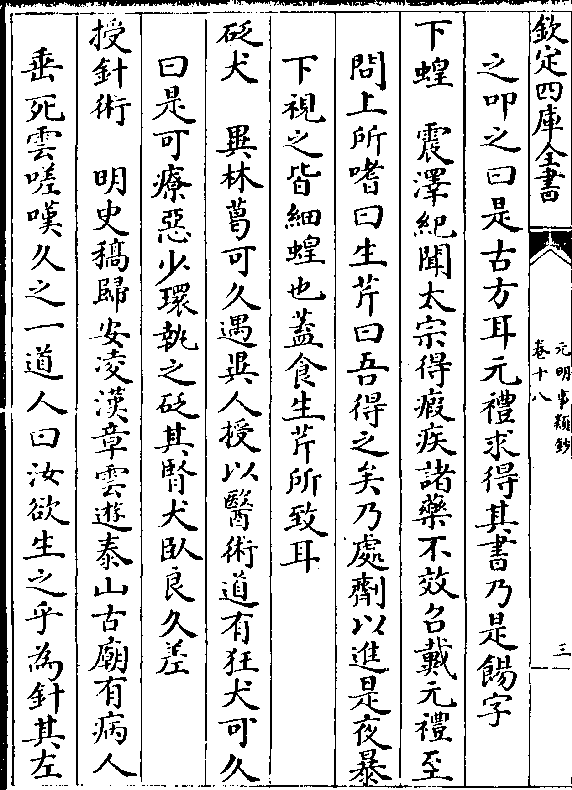 欽定四庫全書
元明事類鈔
卷十八
三
之叩之曰是古方耳元禮求得其書乃是餳字
下蝗　震澤紀聞太宗得瘕疾諸藥不效召戴元禮至
問上所嗜曰生芹曰吾得之矣乃處劑以進是夜暴
下視之皆細蝗也蓋食生芹所致耳
砭犬　異林葛可久遇異人授以醫術道有狂犬可久
曰是可療惡少環執之砭其腎犬臥良久差
授針術　明史稿歸安凌漢章雲遊泰山古廟有病人
垂死雲嗟嘆久之一道人曰汝欲生之乎為針其左